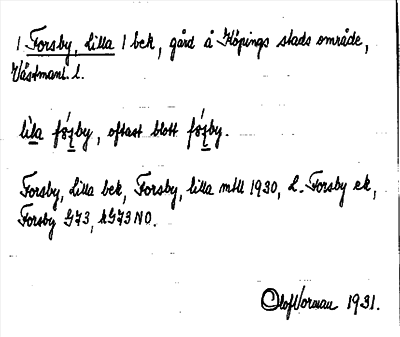 1 Forsby, Lilla 1 bek, gård å Köpings stads område,
Västmanl. l.
lı̀la fǿʂby, oftast blott fǿʂby.
Forsby, Lilla bek, Forsby, lilla mtll 1930, L. Forsby ek,
Forsby G73, hG73 NO.
Olof Vorman 1931.